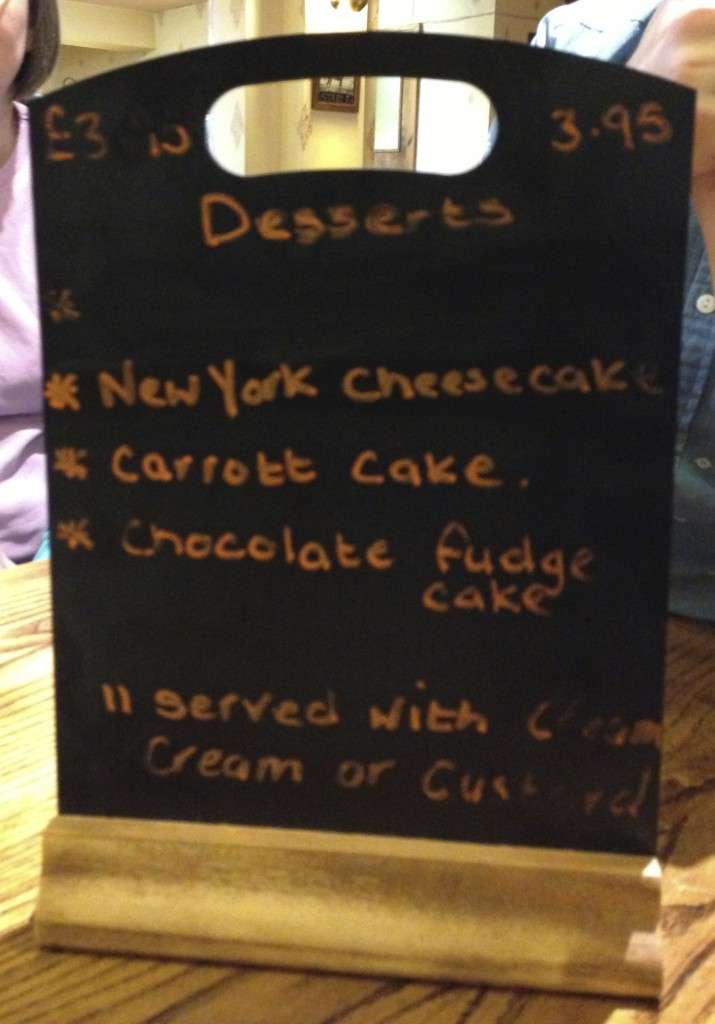 £3 3.95
Desserts
*
* New York Cheesecake
* Carrott Cake.
* Chocolate fudge
cake
" served with Cream
Cream or Custard